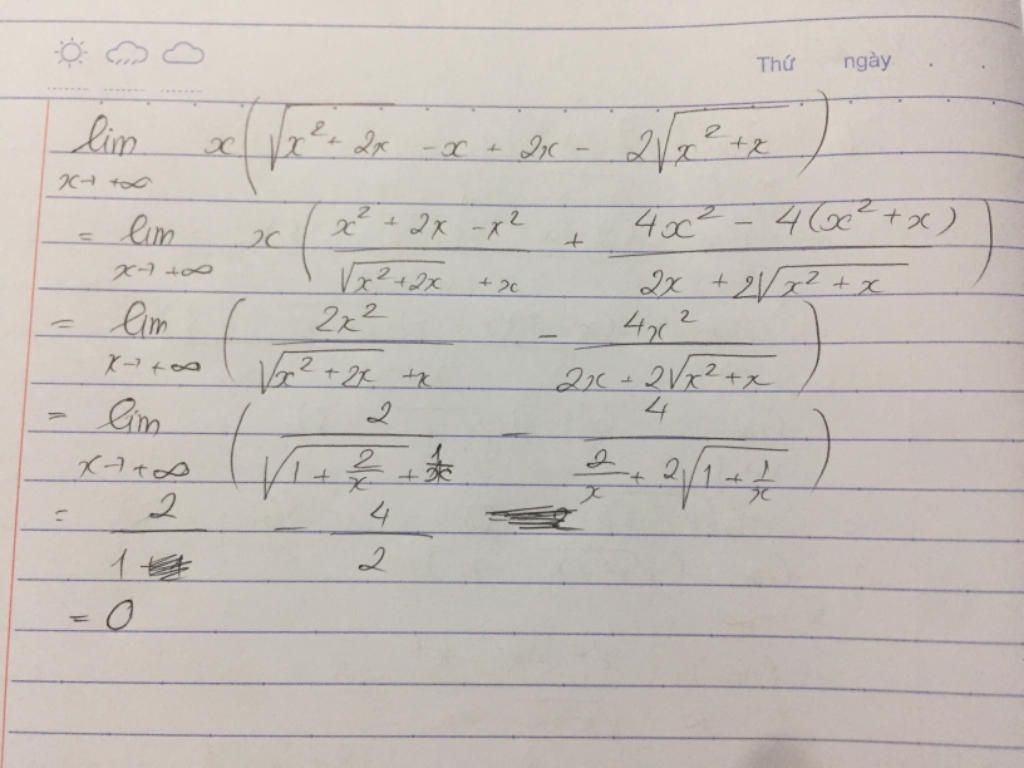 Thứ ngày . .
lim x→+∞ x(√(x² + 2x) - x + 2x - 2√(x² + x))
= lim x→+∞ x((x² + 2x - x²)/(√(x² + 2x) + x) + (4x² - 4(x² + x))/(2x + 2√(x² + x)))
= lim x→+∞ (2x²/(√(x² + 2x) + x) - 4x²/(2x + 2√(x² + x)))
= lim x→+∞ (2/(√(1 + 2/x) + 1/x) - 4/(2/x + 2√(1 + 1/x)))
= 2/1 - 4/2
= 0